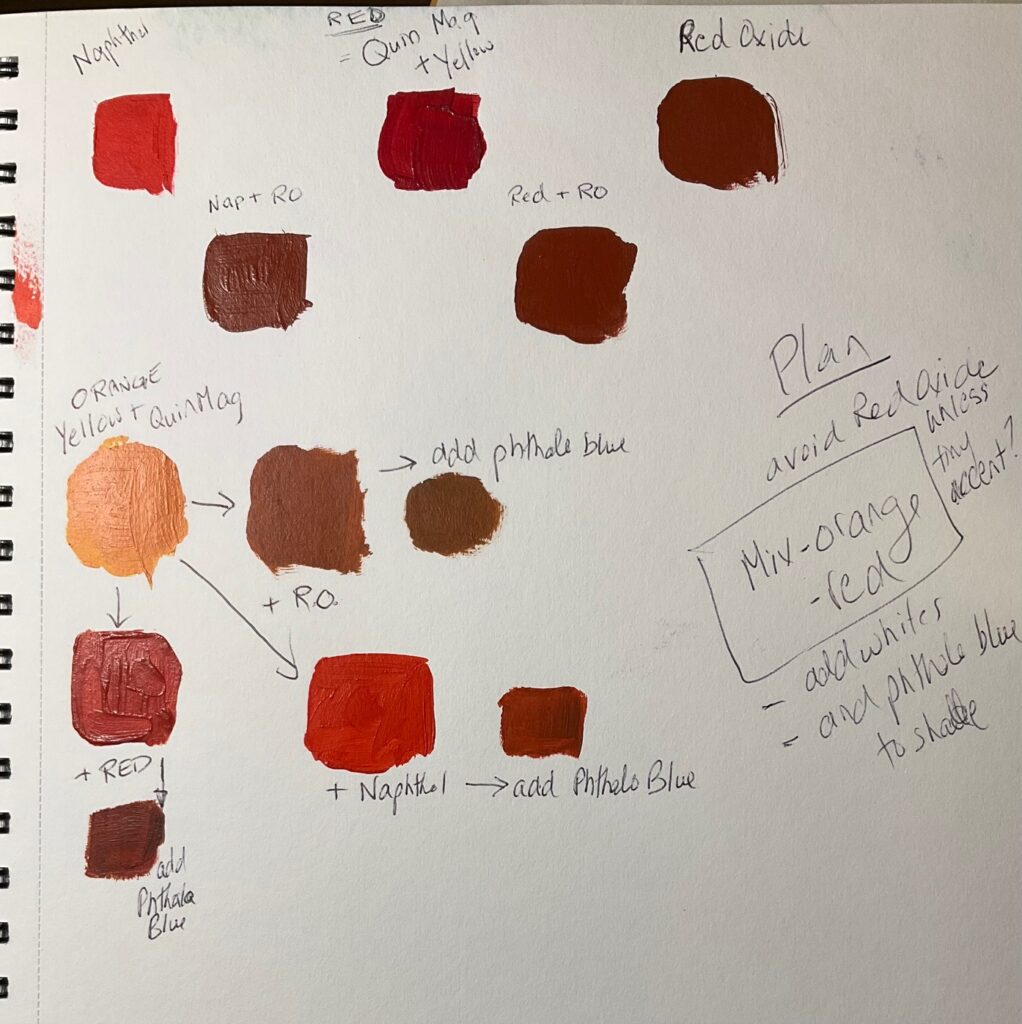 Naphthol
RED
= Quin Mag
+ Yellow
Red Oxide
Nap + RO
Red + RO
ORANGE
Yellow + QuinMag
→ add phthalo blue
+ R.O.
+ RED
add
Phthalo
Blue
+ Naphthol → add Phthalo Blue
Plan
avoid Red Oxide
unless
tiny
accent?
Mix-orange
-red
- add whites
- and phthalo blue
to shade